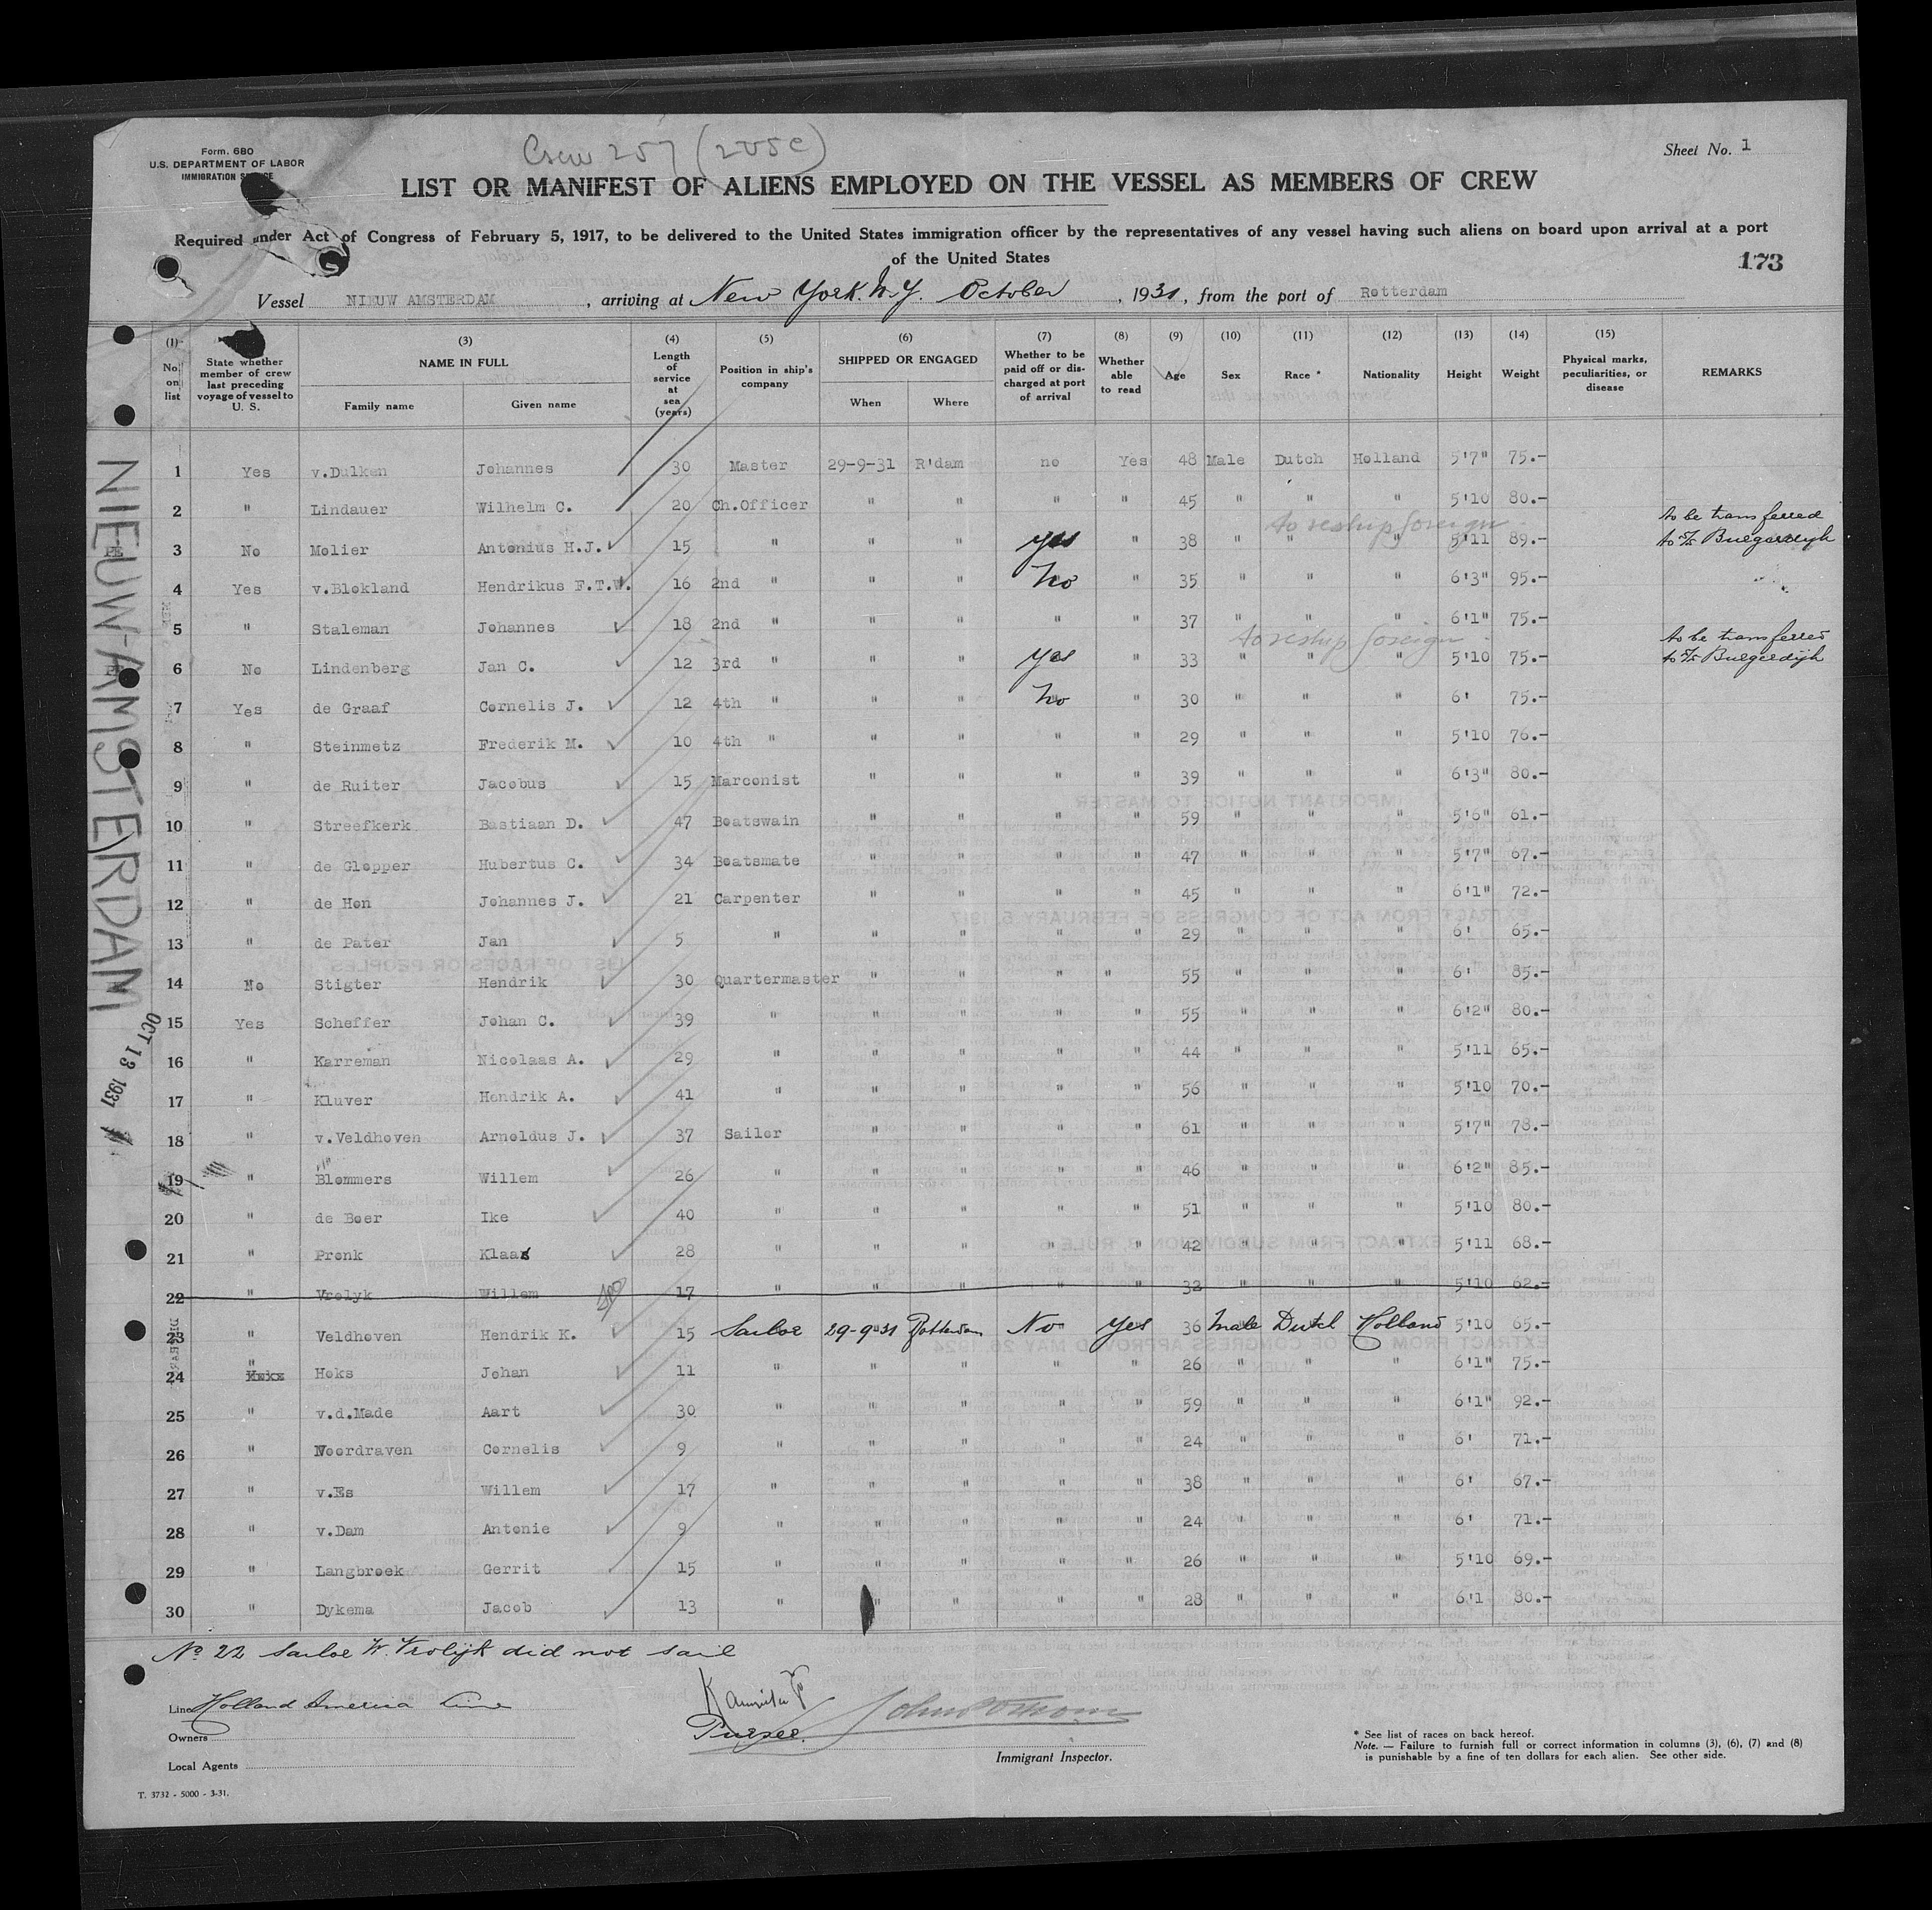 Form. 680
U.S. DEPARTMENT OF LABOR
IMMIGRATION
Crew 257 (205c)
Sheet No. 1
LIST OR MANIFEST OF ALIENS EMPLOYED ON THE VESSEL AS MEMBERS OF CREW
Required under Act of Congress of February 5, 1917, to be delivered to the United States immigration officer by the representatives of any vessel having such aliens on board upon arrival at a port
of the United States
173
Vessel NIEUW AMSTERDAM, arriving at New York. N.Y. October, 1931, from the port of Rotterdam
(1) No. on list
(2) State whether member of crew last preceding voyage of vessel to U. S.
(3) NAME IN FULL Family name Given name
(4) Length of service at sea (years)
(5) Position in ship's company
(6) SHIPPED OR ENGAGED When Where
(7) Whether to be paid off or discharged at port of arrival
(8) Whether able to read
(9) Age
(10) Sex
(11) Race *
(12) Nationality
(13) Height
(14) Weight
(15) Physical marks, peculiarities, or disease
REMARKS
1 Yes v.Dulken Johannes 30 Master 29-9-31 R'dam no Yes 48 Male Dutch Holland 5'7" 75.-
2 " Lindauer Wilhelm C. 20 Ch.Officer " " " " 45 " " " 5'10 80.-
to reship foreign
to be transferred
3 No Molier Antonius H.J. 15 " " " yes " 38 " " " 5'11 89.- to S/s Burgerdijk
4 Yes v.Blokland Hendrikus F.T.W. 16 2nd " " " No " 35 " " " 6'3" 95.-
5 " Staleman Johannes 18 2nd " " " " " 37 " " " 6'1" 75.-
to reship foreign
to be transferred
6 No Lindenberg Jan C. 12 3rd " " " yes " 33 " " " 5'10 75.- to S/s Burgerdijk
7 Yes de Graaf Cornelis J. 12 4th " " " No " 30 " " " 6' 75.-
8 " Steinmetz Frederik M. 10 4th " " " " " 29 " " " 5'10 76.-
9 " de Ruiter Jacobus 15 Marconist " " " " 39 " " " 6'3" 80.-
10 " Streefkerk Bastiaan D. 47 Boatswain " " " " 59 " " " 5'6" 61.-
11 " de Glopper Hubertus C. 34 Boatsmate " " " " 47 " " " 5'7" 67.-
12 " de Hon Johannes J. 21 Carpenter " " " " 45 " " " 6'1" 72.-
13 " de Pater Jan 5 " " " " " 29 " " " 6' 65.-
14 No Stigter Hendrik 30 Quartermaster " " " " 55 " " " 6' 85.-
15 Yes Scheffer Johan C. 39 " " " " " 55 " " " 6'2" 80.-
16 " Karreman Nicolaas A. 29 " " " " " 44 " " " 5'11 65.-
17 " Kluver Hendrik A. 41 " " " " " 56 " " " 5'10 70.-
18 " v.Veldhoven Arnoldus J. 37 Sailor " " " " 61 " " " 5'7" 78.-
19 " Blommers Willem 26 " " " " " 46 " " " 6'2" 85.-
20 " de Boer Ike 40 " " " " " 51 " " " 5'10 80.-
21 " Pronk Klaas 28 " " " " " 42 " " " 5'11 68.-
22 " Vrolyk Willem 17 " " " " " 32 " " " 5'10 62.-
23 " Veldhoven Hendrik K. 15 Sailor 29-9-31 Rotterdam No yes 36 Male Dutch Holland 5'10 65.-
24 " Hoks Johan 11 " " " " " 26 " " " 6'1" 75.-
25 " v.d.Made Aart 30 " " " " " 59 " " " 6'1" 92.-
26 " Noordraven Cornelis 9 " " " " " 24 " " " 6' 71.-
27 " v.Es Willem 17 " " " " " 38 " " " 6' 67.-
28 " v.Dam Antonie 9 " " " " " 24 " " " 6' 71.-
29 " Langbroek Gerrit 15 " " " " " 26 " " " 5'10 69.-
30 " Dykema Jacob 13 " " " " " 28 " " " 6'1 80.-
NIEUW-AMSTERDAM
OCT 13 1931
No 22 Sailor W. Vrolijk did not sail
Line Holland America Line
Owners
Local Agents
Purser.
Immigrant Inspector.
* See list of races on back hereof.
Note. — Failure to furnish full or correct information in columns (3), (6), (7) and (8)
is punishable by a fine of ten dollars for each alien. See other side.
T. 3732 - 5000 - 3-31.